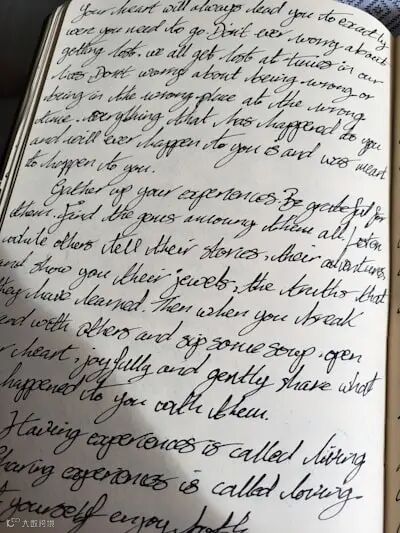 your heart will always lead you to exactly
were you need to go. Don't ever worry about
getting lost. we all get lost at times in our
Don't worry about being wrong or
being in the wrong place at the wrong
time. everything that has happened to you
and will ever happen to you is and was meant
to happen to you.
Gather up your experiences. Be grateful for
them. Find the among them all. Listen
while others tell their stories, their adventures
and show you their jewels, the truths that
they have learned. Then when you break
with others and sip some soup, open
r heart, joyfully and gently share what
happened to you with them.
Having experiences is called living
haring experiences is called loving.
t yourself enjoy both
大数跨境